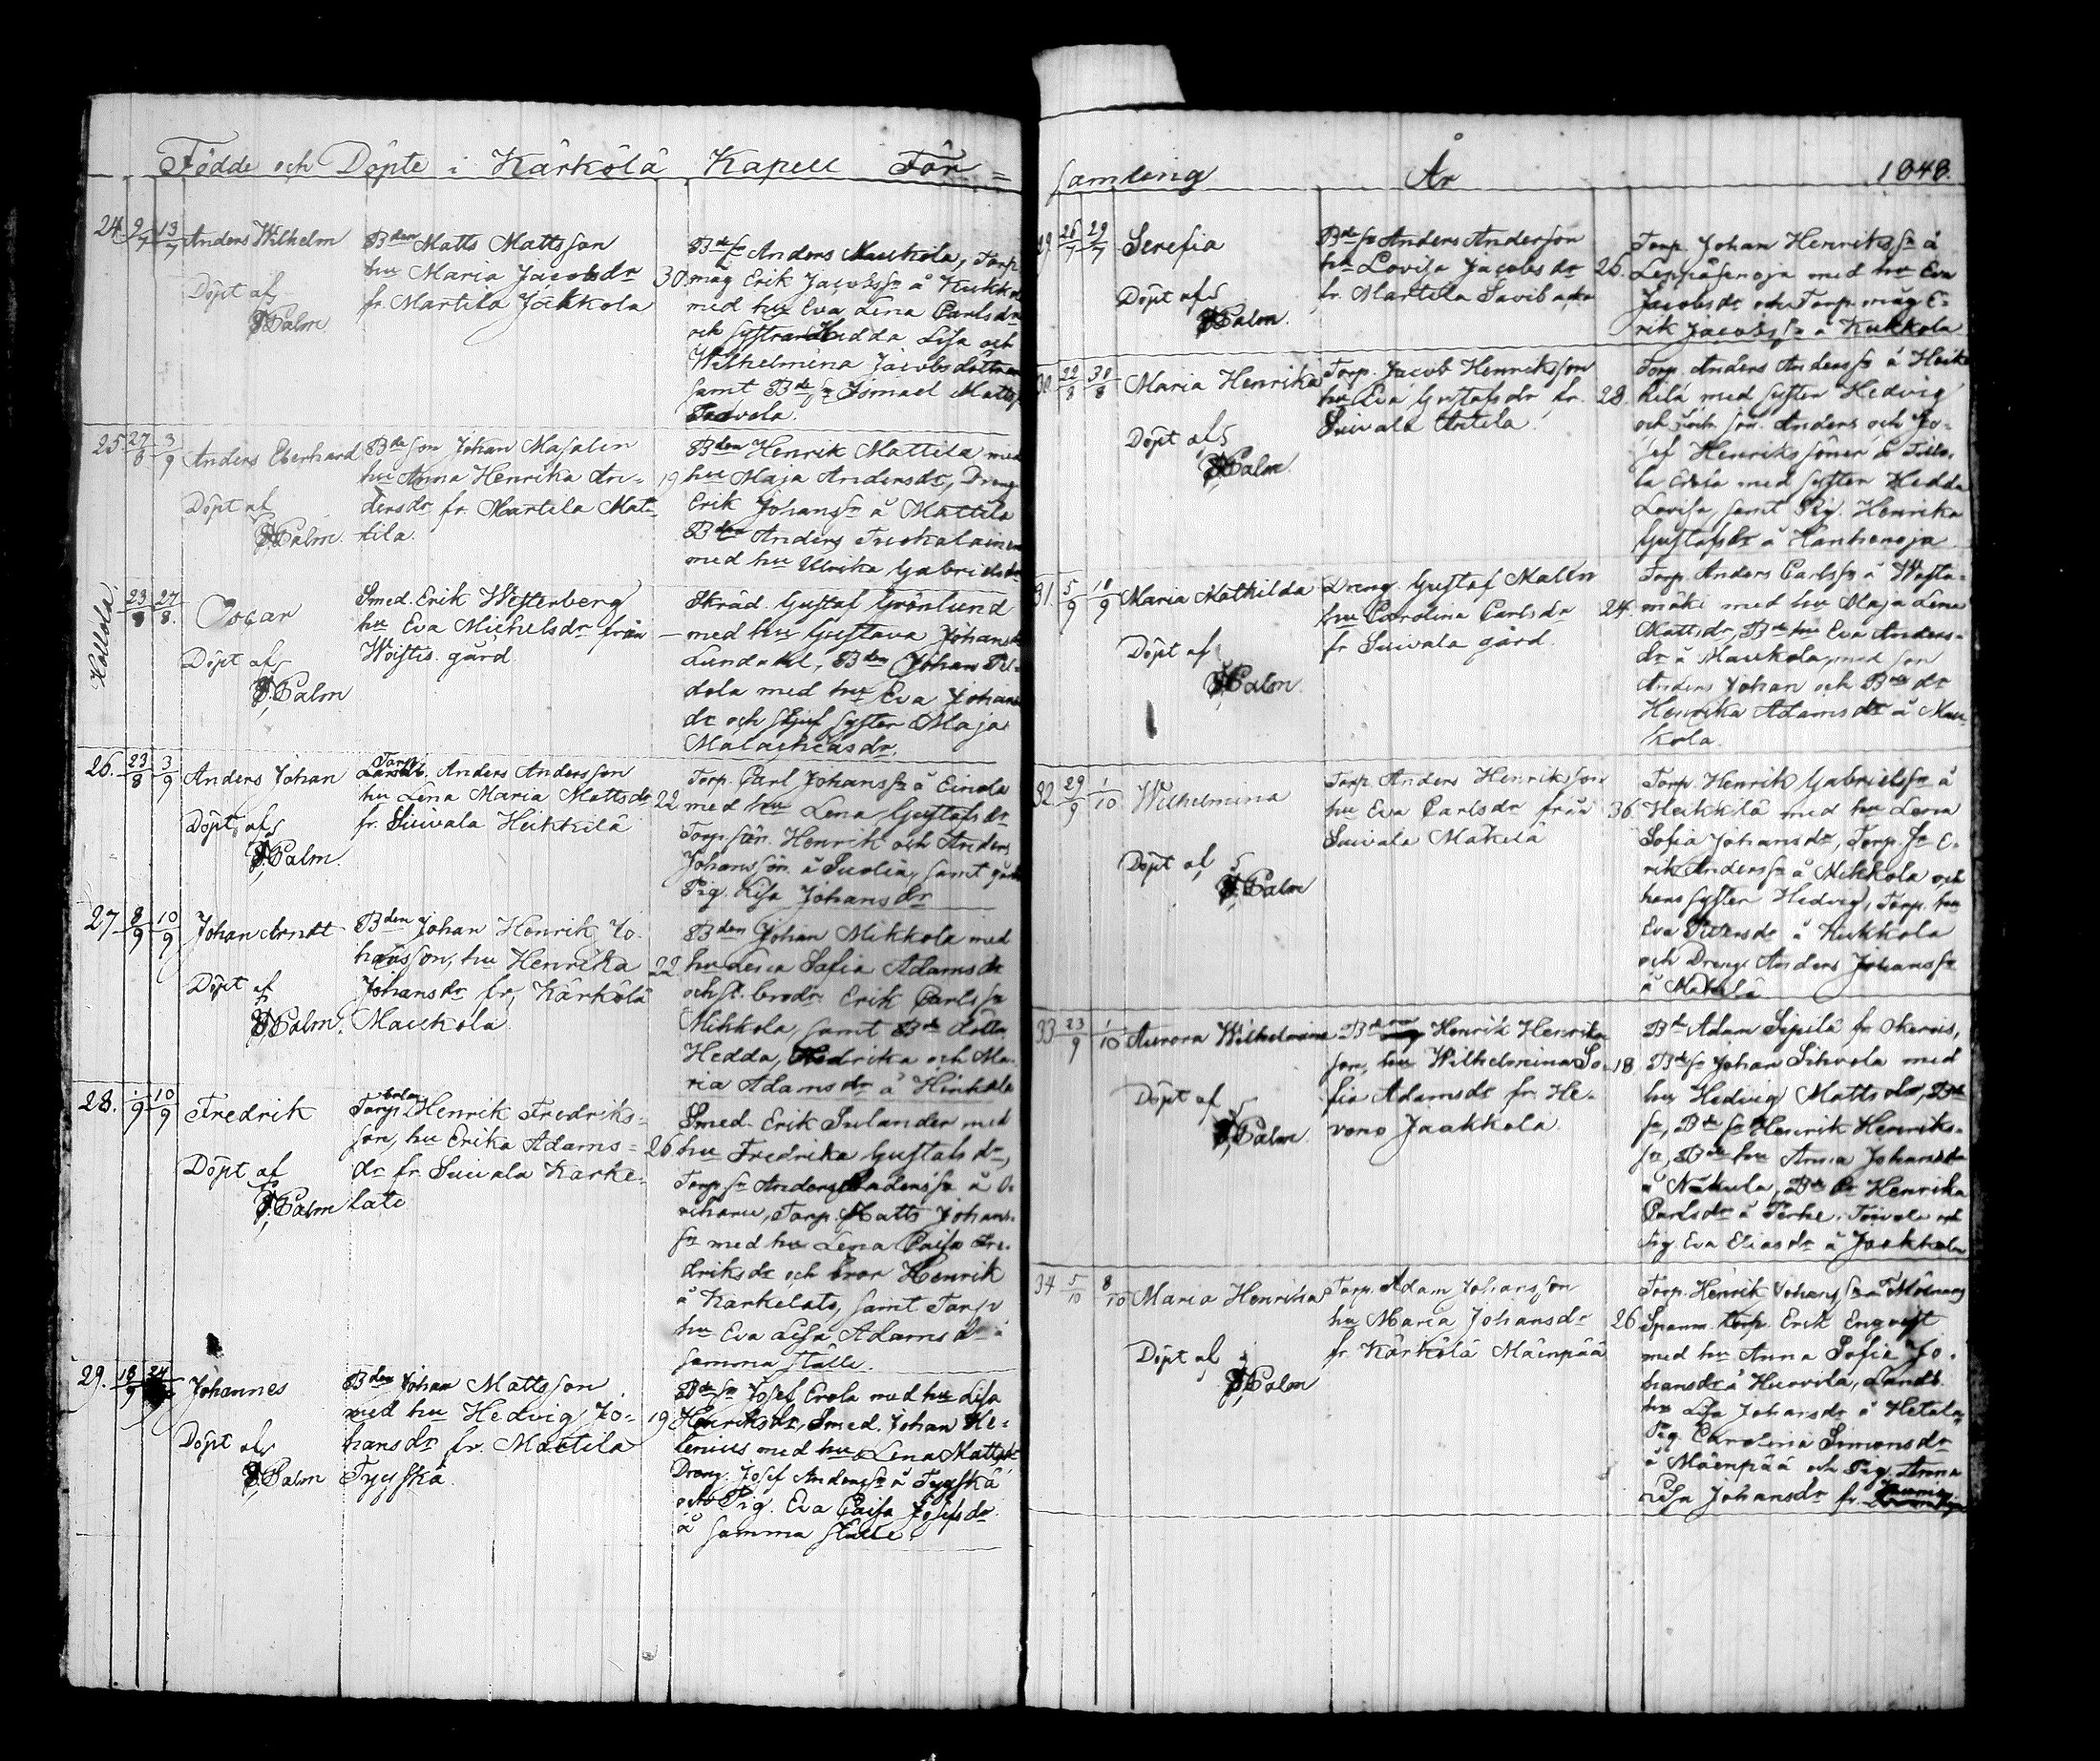 Födde och Döpte i Kärkölä Kapell För=
24. 9/7 13/7 Anders Wilhelm
Döpt af
Palm
Bden Matts Mattsson
hu Maria Jacobsdr
fr. Martila Jaakkola
30.
Bdeso Anders Maukola, Torp.
måg Erik Jacobsso å Kukkola
med hu Eva Lena Carlsdr
och systrar Hedda Lisa och
Wilhelmina Jacobsdöttrar
samt Bdeso Ismael Matts
25. 3/9 Anders Eberhard
Döpt af
Palm
Bdeson Johan Masalin
hu Anna Henrika An-
dersdr fr. Martila Mat-
tila.
19
Bden Henrik Mattila med
hu Maja Andersdr, Dreng
Erik Johansso å Mattila
Bden Anders Tuokalainen
med hu Ulrika Gabrielsdr
Hollola.
23/8 27/8. Oscar
Döpt af
Palm
Smed. Erik Westerberg
hu Eva Michelsdr från
Woistis gård
—
Skräd. Gustaf Grönlund
med hu Gustava Johansdr
Lundahl, Bden Johan
dola med hu Eva Johans
dr och syster Maja
Malachiasdr.
26. 23/8 3/9 Anders Johan
Döpt af
Palm.
Torp. Anders Andersson
hu Lena Maria Mattsdr
fr. Suivala Heikkilä
22
Torp. Carl Johansso å Einola
med hu Lena Gustafsdr
Torp. sön. Henrik och Anders
Johanssön. å samt
Pig. Lisa Johansdr
27 8/9 10/9 Johan Arndt
Döpt af
Palm.
Bden Johan Henrik Jo-
hansson, hu Henrika
Johansdr fr. Kärkölä
Maukola.
22
Bden Johan Mikkola med
hu Lena Sofia Adamsdr
och st. brodr. Erik Carlsso
Mikkola, samt Bde döttr.
Hedda, Fredrika och Ma-
ria Adamsdr å Hinkola
28. 10/9 Fredrik
Döpt af
Palm
Torp. Henrik Fredriks-
son, hu Erika Adams-
dr fr Suivala Karke-
lato
26
Smed. Erik Sulander med
hu Fredrika Gustafsdr,
Torp. so Anders å
Torp. Matts Johans-
so med hu Lena Caisa Fre-
driksdr och bror Henrik
å Karkelato, samt Torp
hu Eva Lisa Adamsdr å
samma ställe.
29. 18/9 Johannes
Döpt af
Palm
Bden Johan Mattsson
med hu Hedvig Jo-
hansdr fr. Mattila
Tyyskä.
19
Bdeso Josef Erola med hu Lisa
Henriksdr, Smed. Johan He-
lenius med hu Lena Mattsdr
Dreng. Josef Andersso å Tyyskä
och Pig. Eva Caisa Josefsdr.
å samma ställe.
samling År 1848.
29. 26/7 29/7 Serefia
Döpt af
Palm.
Bdeso Anders Anderson
hu Lovisa Jacobsdr
fr. Martila
26.
Torp. Johan Henriksso å
med hu Eva
Jacobsdr och Torp. måg E-
rik Jacobsso å Kukkola
30. 22/8 Maria Henrika
Döpt af
Palm.
Torp. Jacob Henriksson
hu Eva Gustafsdr fr.
Suivala Antila.
28.
Torp. Anders Andersso å Heik-
kilä med syster Hedvig
och Anders och Jo-
sef Henriks söner å
med syster Hedda
Lovisa, samt Pig. Henrika
Gustafsdr å Hankenoja
31. 5/9 10/9 Maria Mathilda
Döpt af
Palm.
Dreng. Gustaf Malin
hu Carolina Carlsdr
fr Suivala gård.
24.
Torp. Anders Carlsso å
mäki med hu Maja Lena
Mattsdr, Bde hu Eva Anders-
dr å Maukola, med son
Anders Johan och Bdedr
Henrika Adamsdr å Mau-
kola.
32. 29/9 1/10 Wilhelmina
Döpt af
Palm
Torp. Anders Henriksson
hu Eva Carlsdr från
Suivala Mäkelä
36.
Torp. Henrik Gabrielsso å
Heikkilä med hu Lena
Sofia Johansdr, Torp. so E-
rik Andersso å Mikkola och
hans syster Hedvig, Torp. hu
Eva å Kukkola
och Dreng. Anders Johansso
å Mäkelä
33. 23/9 1/10 Aurora Wilhelmina
Döpt af
Palm.
Bde Henrik Henrik-
son, hu Wilhelmina So-
fia Adamsdr fr. He-
vono Jaakkola
18
Bde Adam Sipilä fr.
Bdeso Johan Sihvola med
hu Hedvig Mattsdr, Bde
so, Bdeso Henrik Henriks-
so, Bde hu Anna Johansdr
å Bde dr Henrika
Carlsdr å och
Pig. Eva Eliasdr å Jaakkola
34 5/10 8/10 Maria Henrika
Döpt af
Palm
Torp. Adam Johansson
hu Maria Johansdr
fr. Kärkölä Mäenpää
26
Torp. Henrik Johansso å
Spanm. torp. Erik Enqvist
med hu Anna Sofia Jo-
hansdr å Huovila, Landb.
hu Lisa Johansdr å
Pig. Carolina Simonsdr
å Mäenpää och Pig. Anna
Lisa Johansdr fr.